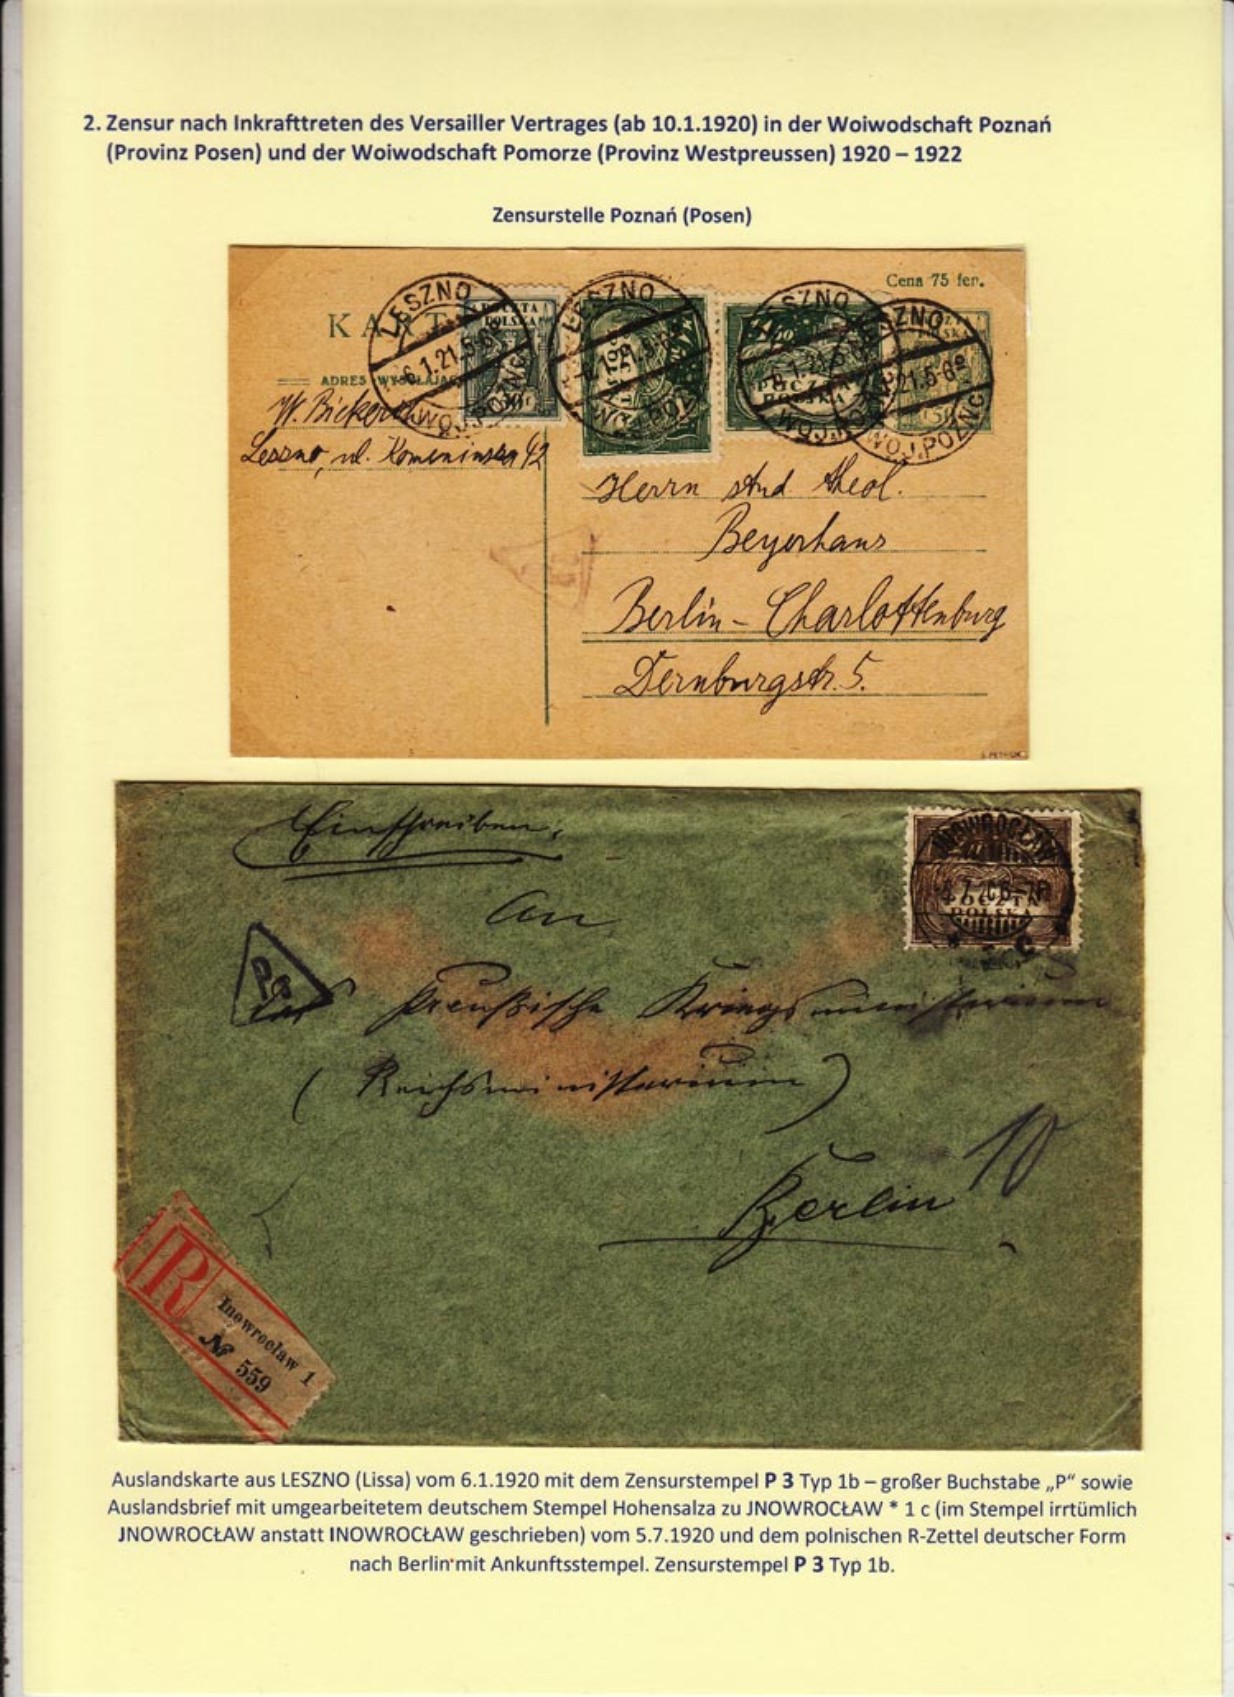 2. Zensur nach Inkrafttreten des Versailler Vertrages (ab 10.1.1920) in der Woiwodschaft Poznań
(Provinz Posen) und der Woiwodschaft Pomorze (Provinz Westpreussen) 1920 – 1922
Zensurstelle Poznań (Posen)
Cena 75 fen.
LESZNO
6.1.21.5-6
WOJ.POZNC.
POCZTA
POLSKA
LESZNO
LESZNO
POCZTA
POLSKA
21.5-6
WOJ.POZNC.
ADRES WYSYŁAJĄC
W. Bickerich
Leszno, ul. 42
Herrn stud. theol.
Beyerhaus
Berlin-Charlottenburg
Dernburgstr. 5.
Einschreiben.
An
das Preußische Kriegsministerium
(Reichsministerium)
Berlin
P3
JNOWROCŁAW
POCZTA
POLSKA
C
R
Inowrocław 1
№ 559
Auslandskarte aus LESZNO (Lissa) vom 6.1.1920 mit dem Zensurstempel P 3 Typ 1b – großer Buchstabe „P“ sowie
Auslandsbrief mit umgearbeitetem deutschem Stempel Hohensalza zu JNOWROCŁAW * 1 c (im Stempel irrtümlich
JNOWROCŁAW anstatt INOWROCŁAW geschrieben) vom 5.7.1920 und dem polnischen R-Zettel deutscher Form
nach Berlin mit Ankunftsstempel. Zensurstempel P 3 Typ 1b.